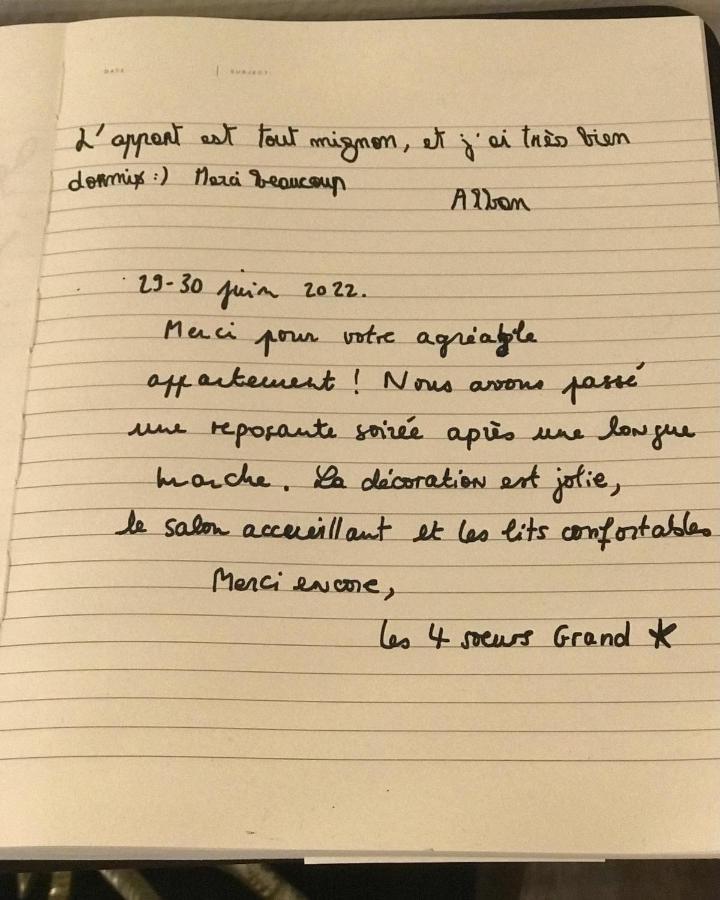 DATE | SUBJECT:
L'appart est tout mignon, et j'ai très bien
dormir :) Merci beaucoup
Alban
29-30 juin 2022.
Merci pour votre agréable
appartement ! Nous avons passé
une reposante soirée après une longue
marche. La décoration est jolie,
le salon accueillant et les lits confortables
Merci encore,
les 4 soeurs Grand ★